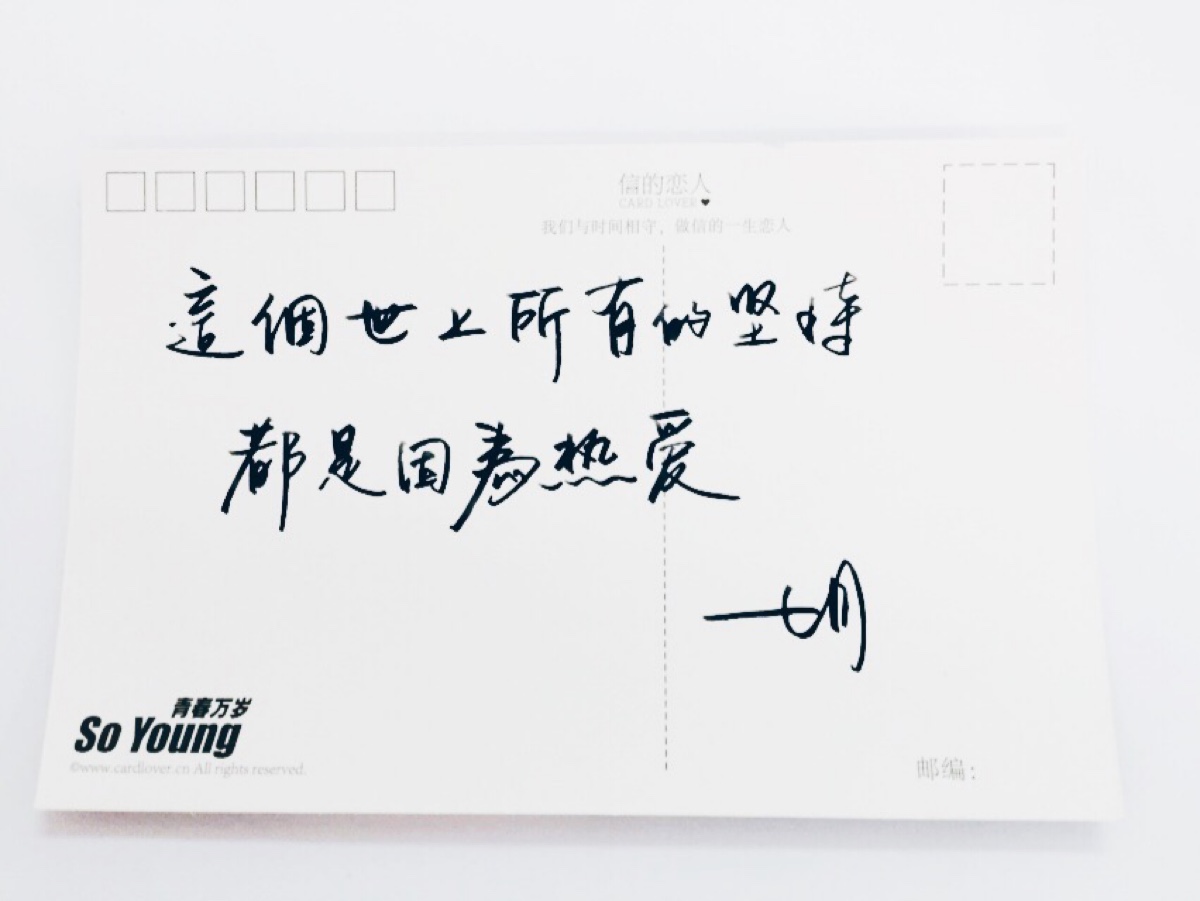 信的恋人
CARD LOVER
我们与时间相守，做信的一生恋人
這個世上所有的坚持
都是因為热爱
青春万岁
So Young
©www.cardlover.cn All rights reserved.
邮编：